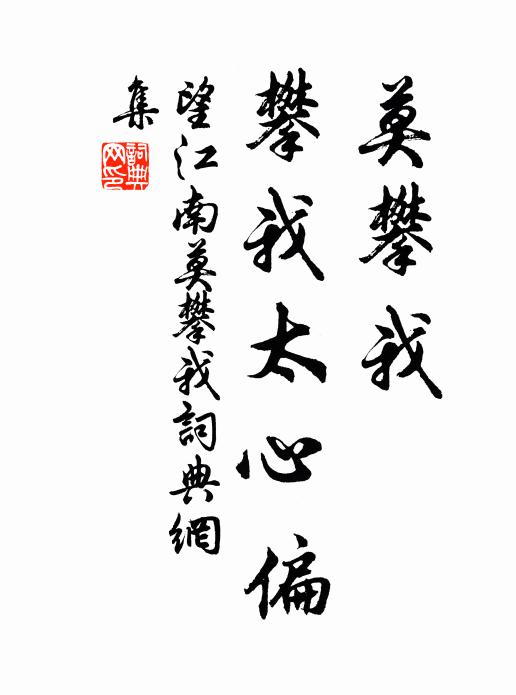 莫攀我
攀我太心偏
望江南莫攀我詞典網
集
詞典
网印